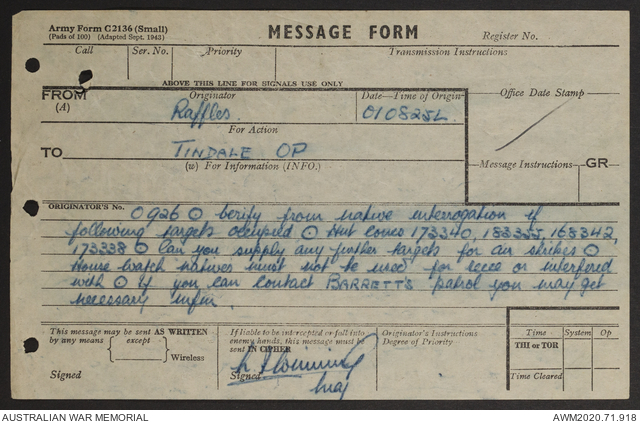 Army Form C2136 (Small)
(Pads of 100) (Adapted Sept. 1943)
MESSAGE FORM
Register No.
Call Ser. No. Priority Transmission Instructions
ABOVE THIS LINE FOR SIGNALS USE ONLY
FROM Originator Date—Time of Origin Office Date Stamp
(A) Raffles. 010825L
For Action
TO TINDALE OP
(w) For Information (INFO.) Message Instructions GR
ORIGINATOR'S No. O926 ⊙ Verify from native interrogation if
following targets occupied ⊙ Hut concs 173340, 183355, 168342,
173338 ⊙ Can you supply any further targets for air strikes ⊙
House Watch natives must not be used for recce or interfered
with ⊙ If you can contact BARRETT'S patrol you may get
necessary infm.
This message may be sent AS WRITTEN
by any means except
Wireless
Signed
If liable to be intercepted or fall into
enemy hands, this message must be
sent IN CIPHER
Signed
Maj
Originator's Instructions
Degree of Priority
Time System Op
THI or TOR
Time Cleared
AUSTRALIAN WAR MEMORIAL AWM2020.71.918